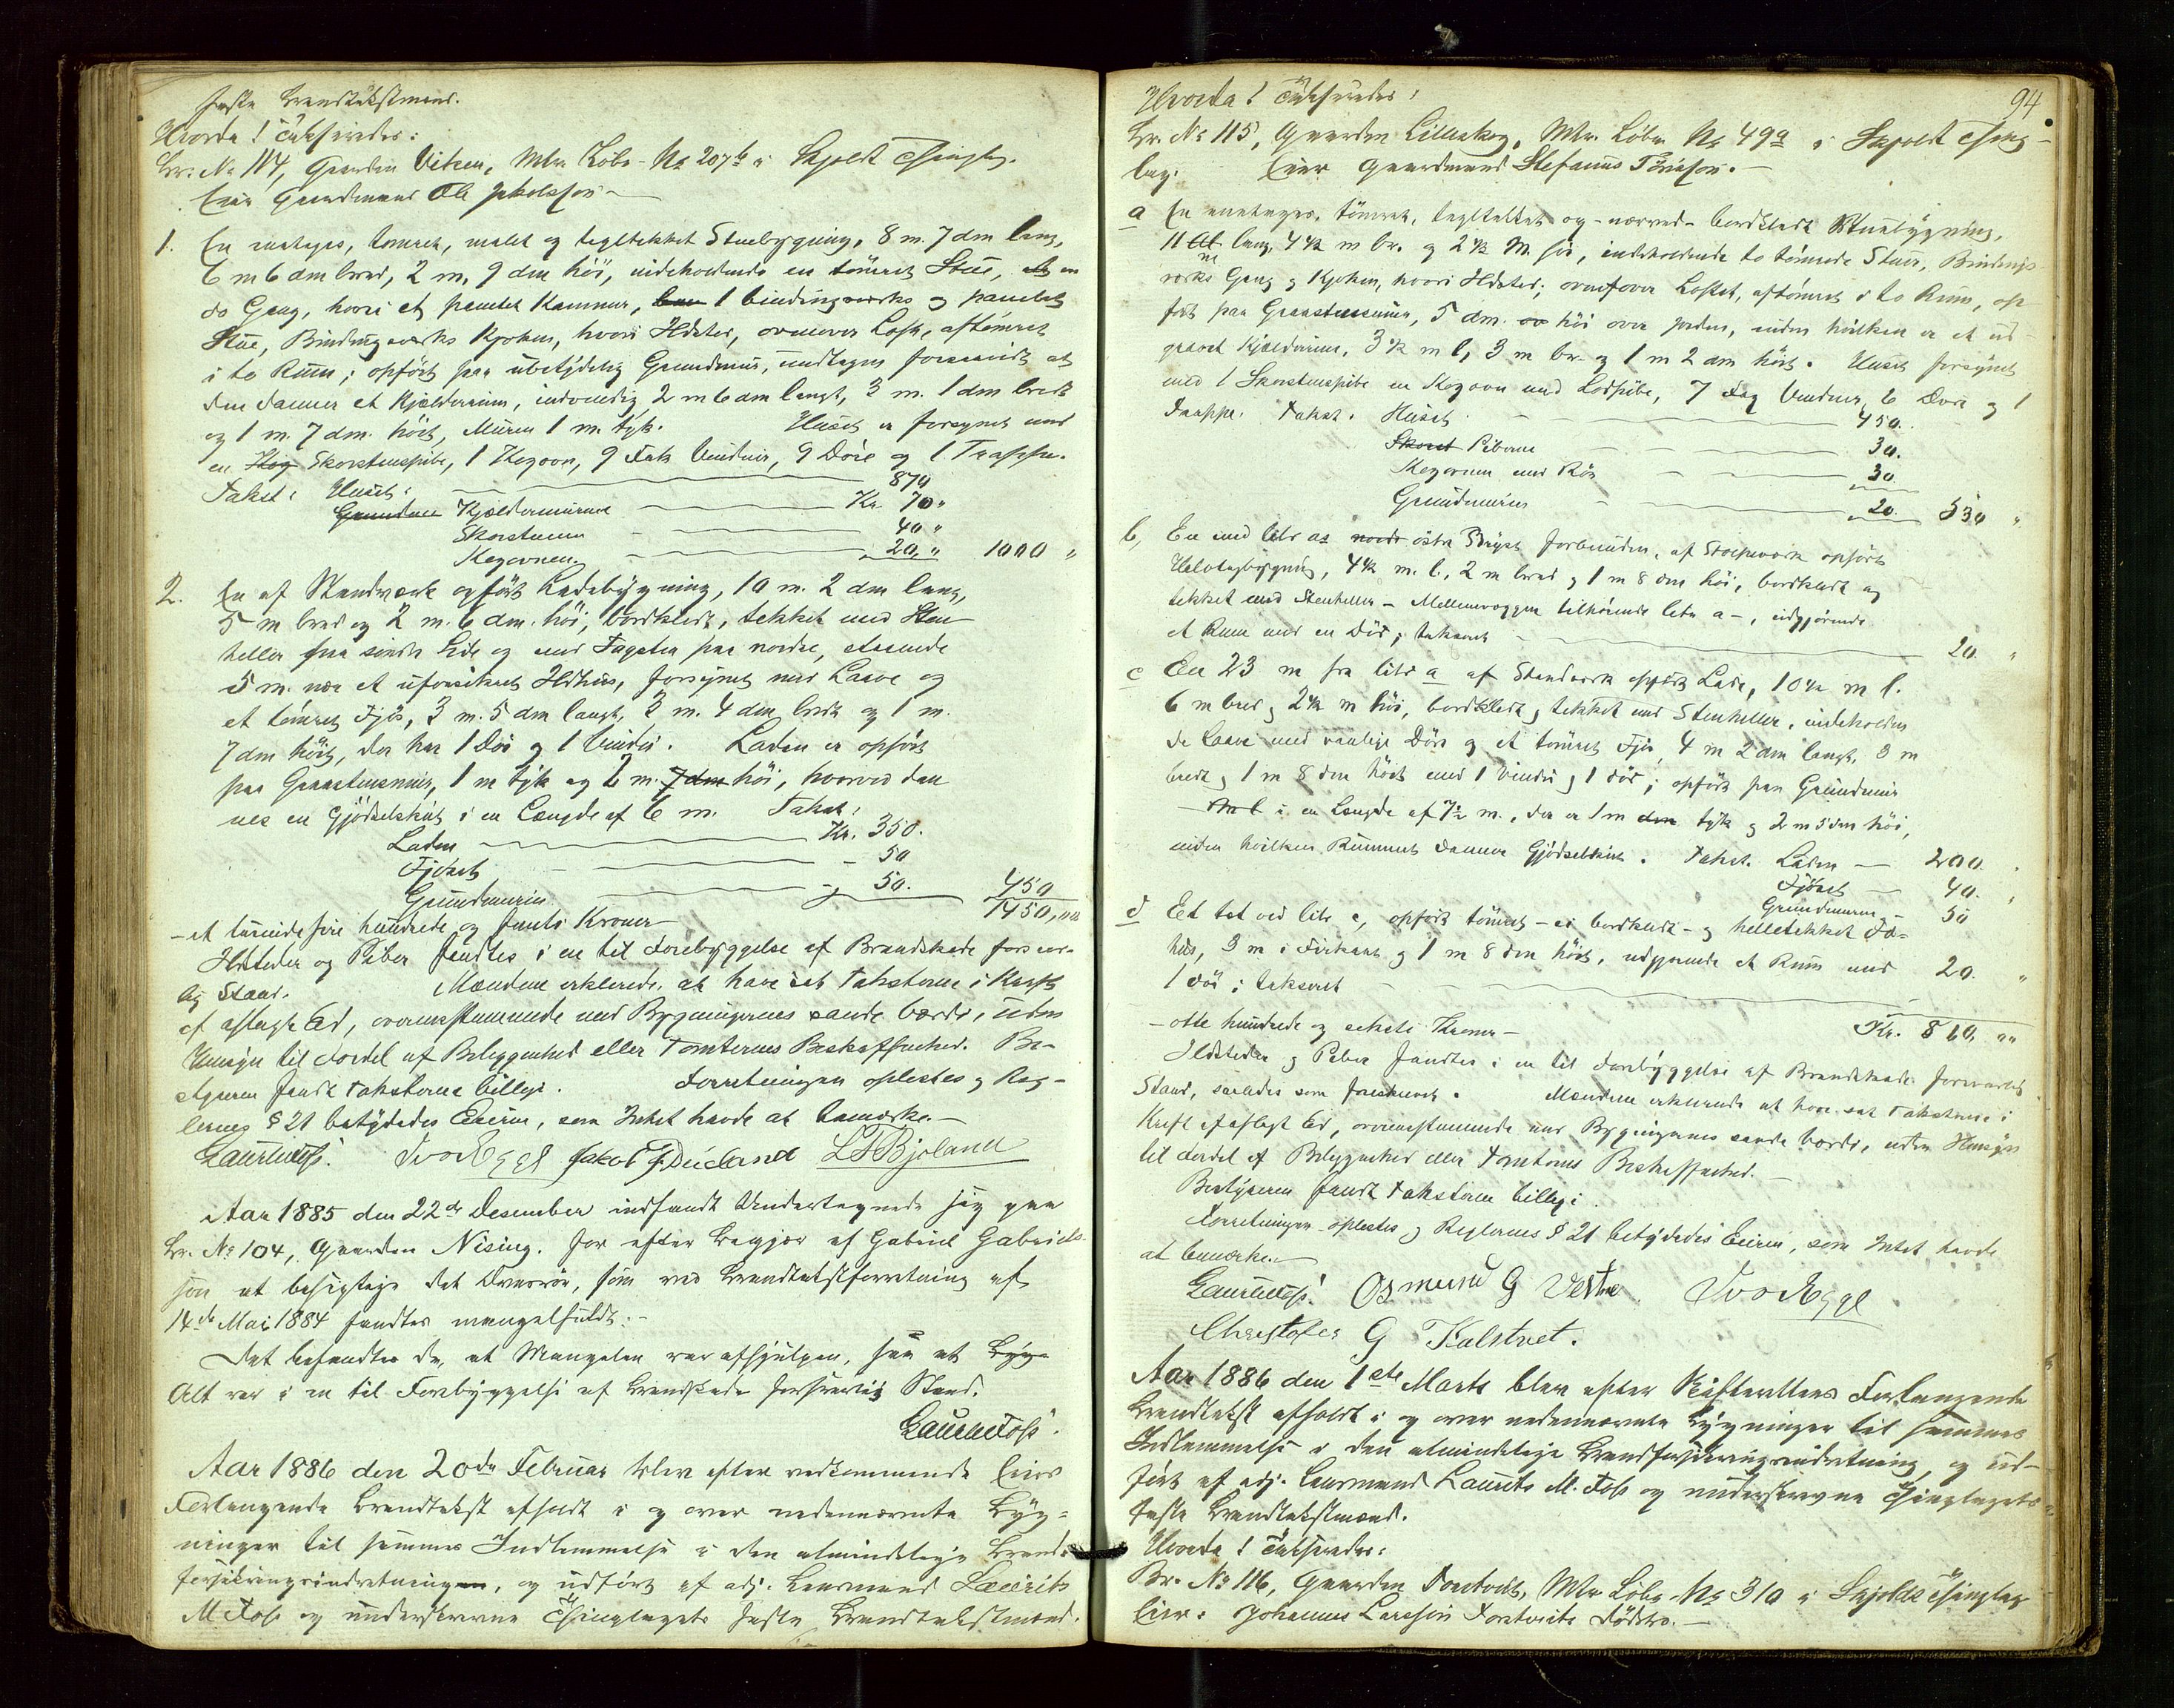 faste Brandtakstmænd.
Hvorda! Taxeredes:
Br. No 114, Gaarden Viken, Mtr. Løbe-No 207b i Skjold Thinglag.
Eier Gaardmand Ole Jakobsson
1. En enetages, tømret, malet og tegltækket Stuebygning, 8 m. 7 dm lang,
6 m 6 dm bred, 2 m. 9 dm høi, indeholdende en tømret Stue, en
do Gang, hvori et panelet Kammer, 1 bindingsværks og panelet
Stue, Bindingsværks Kjøkken, hvori Ildsted, ovenover Loft, aftømret
i to Rum; opført paa ubetydelig Grundmur, undtagen forsaavidt at
den danner et Kjælderrum, indvendig 2 m 6 dm langt, 3 m. 1 dm bredt
og 1 m. 7 dm. høit, Muren 1 m. tyk. Huset er forsynet med
en Kog Skorstenspibe, 1 Kogovn, 9 Fak Vinduer, 9 Døre og 1 Trappe.
Takst: Huset: 870
Grundmu Kjældermurene Kr. 70 "
Skorstenen 40 "
Kogovnen 20 " 1000 "
2. En af Standværk opført Ladebygning, 10 m. 2 dm lang,
5 m bred og 2 m. 6 dm. høi, bordklædt, tækket med Sten-
heller paa søndre Side og med Tagsten paa nordre, staaende
5 m. nær et uforsikret Ildhus, forsynet med Laave og
et tømret Fjøs, 3 m. 5 dm langt, 3 m. 4 dm bredt og 1 m.
7 dm høit, der har 1 Dør og 1 Vindu. Laden er opført
paa Graastensmur, 1 m tyk og 2 m. 7 dm høi, hvorved dan
nes en Gjødselskjut i en Længde af 6 m. Takst:
Laden Kr. 350.
Fjøset - 50
Grundmuren - 50. 450
1450,00
- et tusinde fire hundrede og femti Kroner -
Ildsteder og Piber fandtes i en til Forebyggelse af Brandskade forsvar-
lig Stand. Mændene erklærede, at have sat Taksterne i Kraft
af aflagt Ed, overensstemmende med Bygningernes sande Værdi, uden
Hensyn til Fordel af Beliggenhed eller Tomternes Beskaffenhed. Be-
styreren fandt Taksterne billige. Forretningen oplæstes og Reg-
lernes § 21 betydedes Eieren, som Intet havde at bemærke.-
LauritzFoss. Ivar Egge Jakob J. Dueland L T Bjoland
Aar 1885 den 22de Desember indfandt Undertegnede sig paa
Br. No 104, Gaarden Nising. for efter Begjær af Gabriel Gabriels-
son at besigtige det Ovnsrør, som ved Brandtakstforretning af
14de Mai 1884 fandtes mangelfuldt.-
Det befandtes da, at Mangelen var afhjulpen, saa at Byg
Alt var i en til Forebyggelse af Brandskade forsvarlig Stand.
LauritzFoss.
Aar 1886 den 20de Februar blev efter vedkommende Eiers
Forlangende Brandtakst afholdt i og over nedennævnte Byg-
ninger til sammes Indlemmelse i den almindelige Brand-
forsikringsindretningen, og udført af adj. Lensmand Laurits
M Foss og underskrevne Thinglagets faste Brandtakstmænd.
94
Hvorda! Taxeredes:
Br. No 115, Gaarden Lilleskog, Mtr. Løbe No 49a i Skjold Thing-
lag. Eier Gaardmand Stefanus Tønneson.-
a En enetages, tømret, tegltækket og - nærved - bordklædt Stuebygning,
11 Al. m lang, 4½ m br. og 2½ M. høi, indeholdende to tømrede Stuer, Bindings
værks Gang og Kjøkken, hvori Ildsted; ovenover Loftet, aftømret i to Rum, op
ført paa Graastensmur, 5 dm. høi over Jorden, under hvilken er et ud-
gravet Kjælderrum, 3½ m l, 3 m br. og 1 m 2 dm høit. Huset forsynet
med 1 Skorstenspibe en Kogovn med Lodpibe, 7 Fag Vinduer, 6 Døre og 1
Trappe. Takst. Huset 450.
Skorst Piberne 30.
Kogovnen med Rør 30
Grundmuren 20 530 "
b, En med litr a's nordr østre Bryst forbunden, af Stolpeværk opført
Halvtagbygning, 4½ m. l., 2 m bred og 1 m 8 dm høi, bordklædt og
tækket med Stenheller - Mellemvæggen tilhørende litr a -, udgjørende
et Rum med en Dør; takseret 20. "
c En 23 m fra litr a af Standværk opført Lade, 10½ m l.
6 m bred og 2½ m høi, bordklædt og tækket med Stenheller, indeholden
de Laave med vanlige Døre og et tømret Fjøs, 4 m 2 dm langt, 3 m
bredt og 1 m 8 dm høit med 1 Vindu og 1 Dør; opført paa Grundmur
i en Længde af 7½ m., der er 1 m dm tyk og 2 m 5 dm høi,
inden hvilken Rummet danner Gjødselskjut. Takst. Laden 200. "
Fjøset - 40. "
Grundmuren - 50
d Et tæt ved litr c, opført tømret - ei bordklædt - og helletækket Fa-
hus, 3 m i Firkant og 1 m 8 dm høit, udgjørende et Rum med
1 Dør; takseret 20. "
- otte hundrede og seksti Kroner - Kr. 860 ""
Ildsteder og Piber fandtes i en til Forebyggelse af Brandskade forsvarlig
Stand, saaledes som foreskrevet. Mændene erklærede at have sat Taksterne i
Kraft af aflagt Ed, overensstemmende med Bygningernes sande Værdi, uden Hensyn
til Fordel af Beliggenhed eller Tomternes Beskaffenhed.-
Bestyreren fandt Taksterne billige.
Forretningen oplæstes og Reglernes § 21 betydedes Eieren, som Intet havde
at bemærke.-
LauritzFoss. Osmund G Vestre. Ivar Egge
Christofer G Kalstvet.
Aar 1886 den 1ste Marts blev efter Skifterettens Forlangende
Brandtakst afholdt i og over nedennævnte Bygninger til sammes
Indlemmelse i den almindelige Brandforsikringsindretning, og ud-
ført af adj. Lensmand Laurits M. Foss og underskrevne Thinglagets
faste Brandtakstmænd.
Hvorda! Taxeredes:
Br. No 116, Gaarden Tveit, Mtr Løbe-No 310 i Skjold Thinglag
Eier: Johannes Larsson